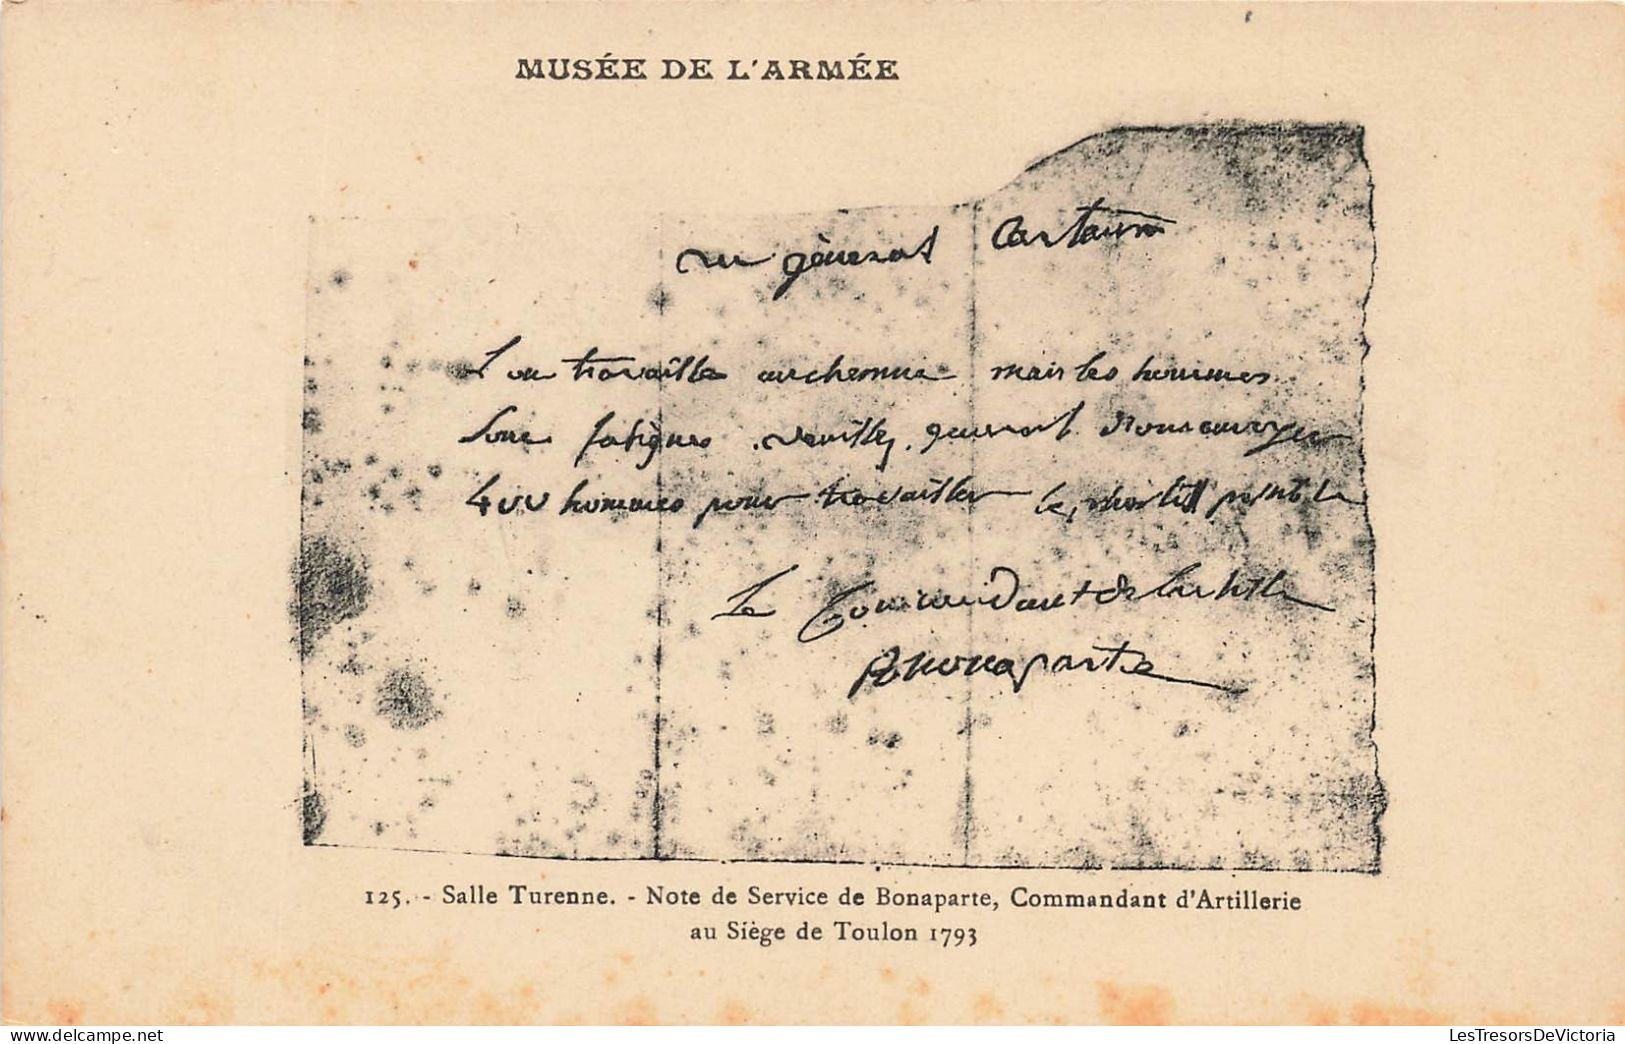 MUSÉE DE L'ARMÉE
au général Cartaux
L'on travaille au chemin mais les hommes
sont fatigués. veuillez général nous envoyer
400 hommes pour travailler
Le Commandant de l'artill
Buonaparte
125. - Salle Turenne. - Note de Service de Bonaparte, Commandant d'Artillerie
au Siège de Toulon 1793
delcampe.net
LesTresorsDeVictoria